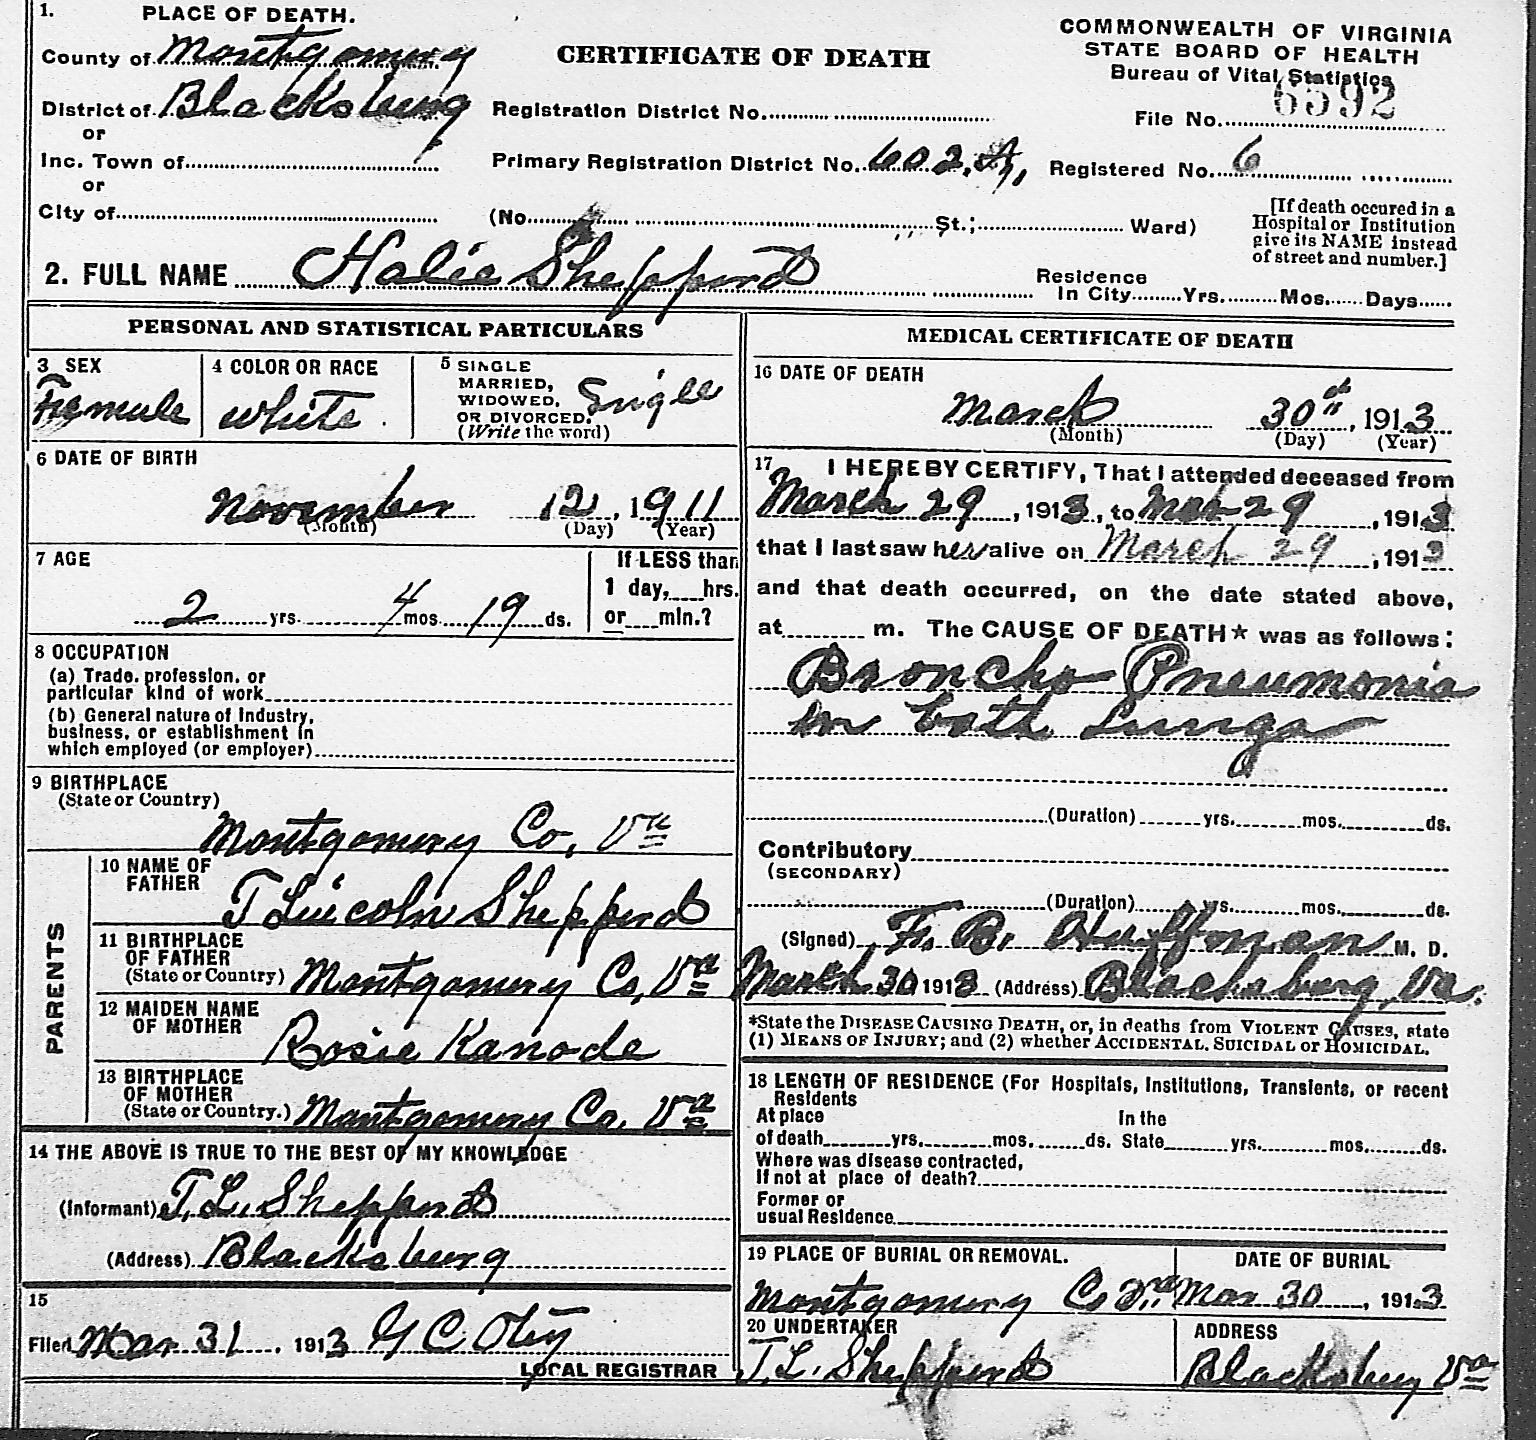 1. PLACE OF DEATH.
County of Montgomery
District of Blacksburg
or
Inc. Town of
or
City of
CERTIFICATE OF DEATH
Registration District No.
Primary Registration District No. 602.A,
(No. St.; Ward)
COMMONWEALTH OF VIRGINIA
STATE BOARD OF HEALTH
Bureau of Vital Statistics
File No. 6592
Registered No. 6
[If death occured in a
Hospital or Institution
give its NAME instead
of street and number.]
2. FULL NAME Halie Shepperd
Residence
In City Yrs. Mos. Days
PERSONAL AND STATISTICAL PARTICULARS
3 SEX
Female
4 COLOR OR RACE
white
5 SINGLE
MARRIED,
WIDOWED,
OR DIVORCED.
(Write the word)
Single
6 DATE OF BIRTH
November 12, 1911
(Month) (Day) (Year)
7 AGE
2 yrs. 4 mos. 19 ds.
If LESS than
1 day, hrs.
or min.?
8 OCCUPATION
(a) Trade, profession, or
particular kind of work
(b) General nature of Industry,
business, or establishment in
which employed (or employer)
9 BIRTHPLACE
(State or Country)
Montgomery Co, Va
PARENTS
10 NAME OF
FATHER
T Lincoln Shepperd
11 BIRTHPLACE
OF FATHER
(State or Country) Montgomery Co, Va
12 MAIDEN NAME
OF MOTHER
Rosie Kanode
13 BIRTHPLACE
OF MOTHER
(State or Country.) Montgomery Co. Va
14 THE ABOVE IS TRUE TO THE BEST OF MY KNOWLEDGE
(Informant) T. L. Shepperd
(Address) Blacksburg
15
Filed Mar 31, 1913 G C Oty
LOCAL REGISTRAR
MEDICAL CERTIFICATE OF DEATH
16 DATE OF DEATH
March 30th, 1913
(Month) (Day) (Year)
17 I HEREBY CERTIFY, That I attended deceased from
March 29, 1913, to Mch 29, 1913
that I last saw her alive on March 29, 1913
and that death occurred, on the date stated above,
at m. The CAUSE OF DEATH* was as follows:
Broncho Pneumonia
in both Lungs
(Duration) yrs. mos. ds.
Contributory
(SECONDARY)
(Duration) yrs. mos. ds.
(Signed) F. B. Huffman M. D.
March 30 1913 (Address) Blacksburg, Va.
*State the DISEASE CAUSING DEATH, or, in deaths from VIOLENT CAUSES, state
(1) MEANS OF INJURY; and (2) whether ACCIDENTAL, SUICIDAL or HOMICIDAL.
18 LENGTH OF RESIDENCE (For Hospitals, Institutions, Transients, or recent
Residents
At place In the
of death yrs. mos. ds. State yrs. mos. ds.
Where was disease contracted,
If not at place of death?
Former or
usual Residence
19 PLACE OF BURIAL OR REMOVAL.
Montgomery Co
DATE OF BURIAL
Mar 30, 1913
20 UNDERTAKER
T. L. Shepperd
ADDRESS
Blacksburg Va